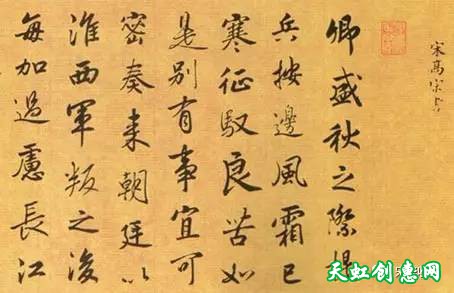 宋高宗书
卿盛秋之際提
兵按邊風霜已
寒征馭良苦如
是别有事宜可
密奏来朝廷以
淮西軍叛之後
每加過慮長江
天虹创意网